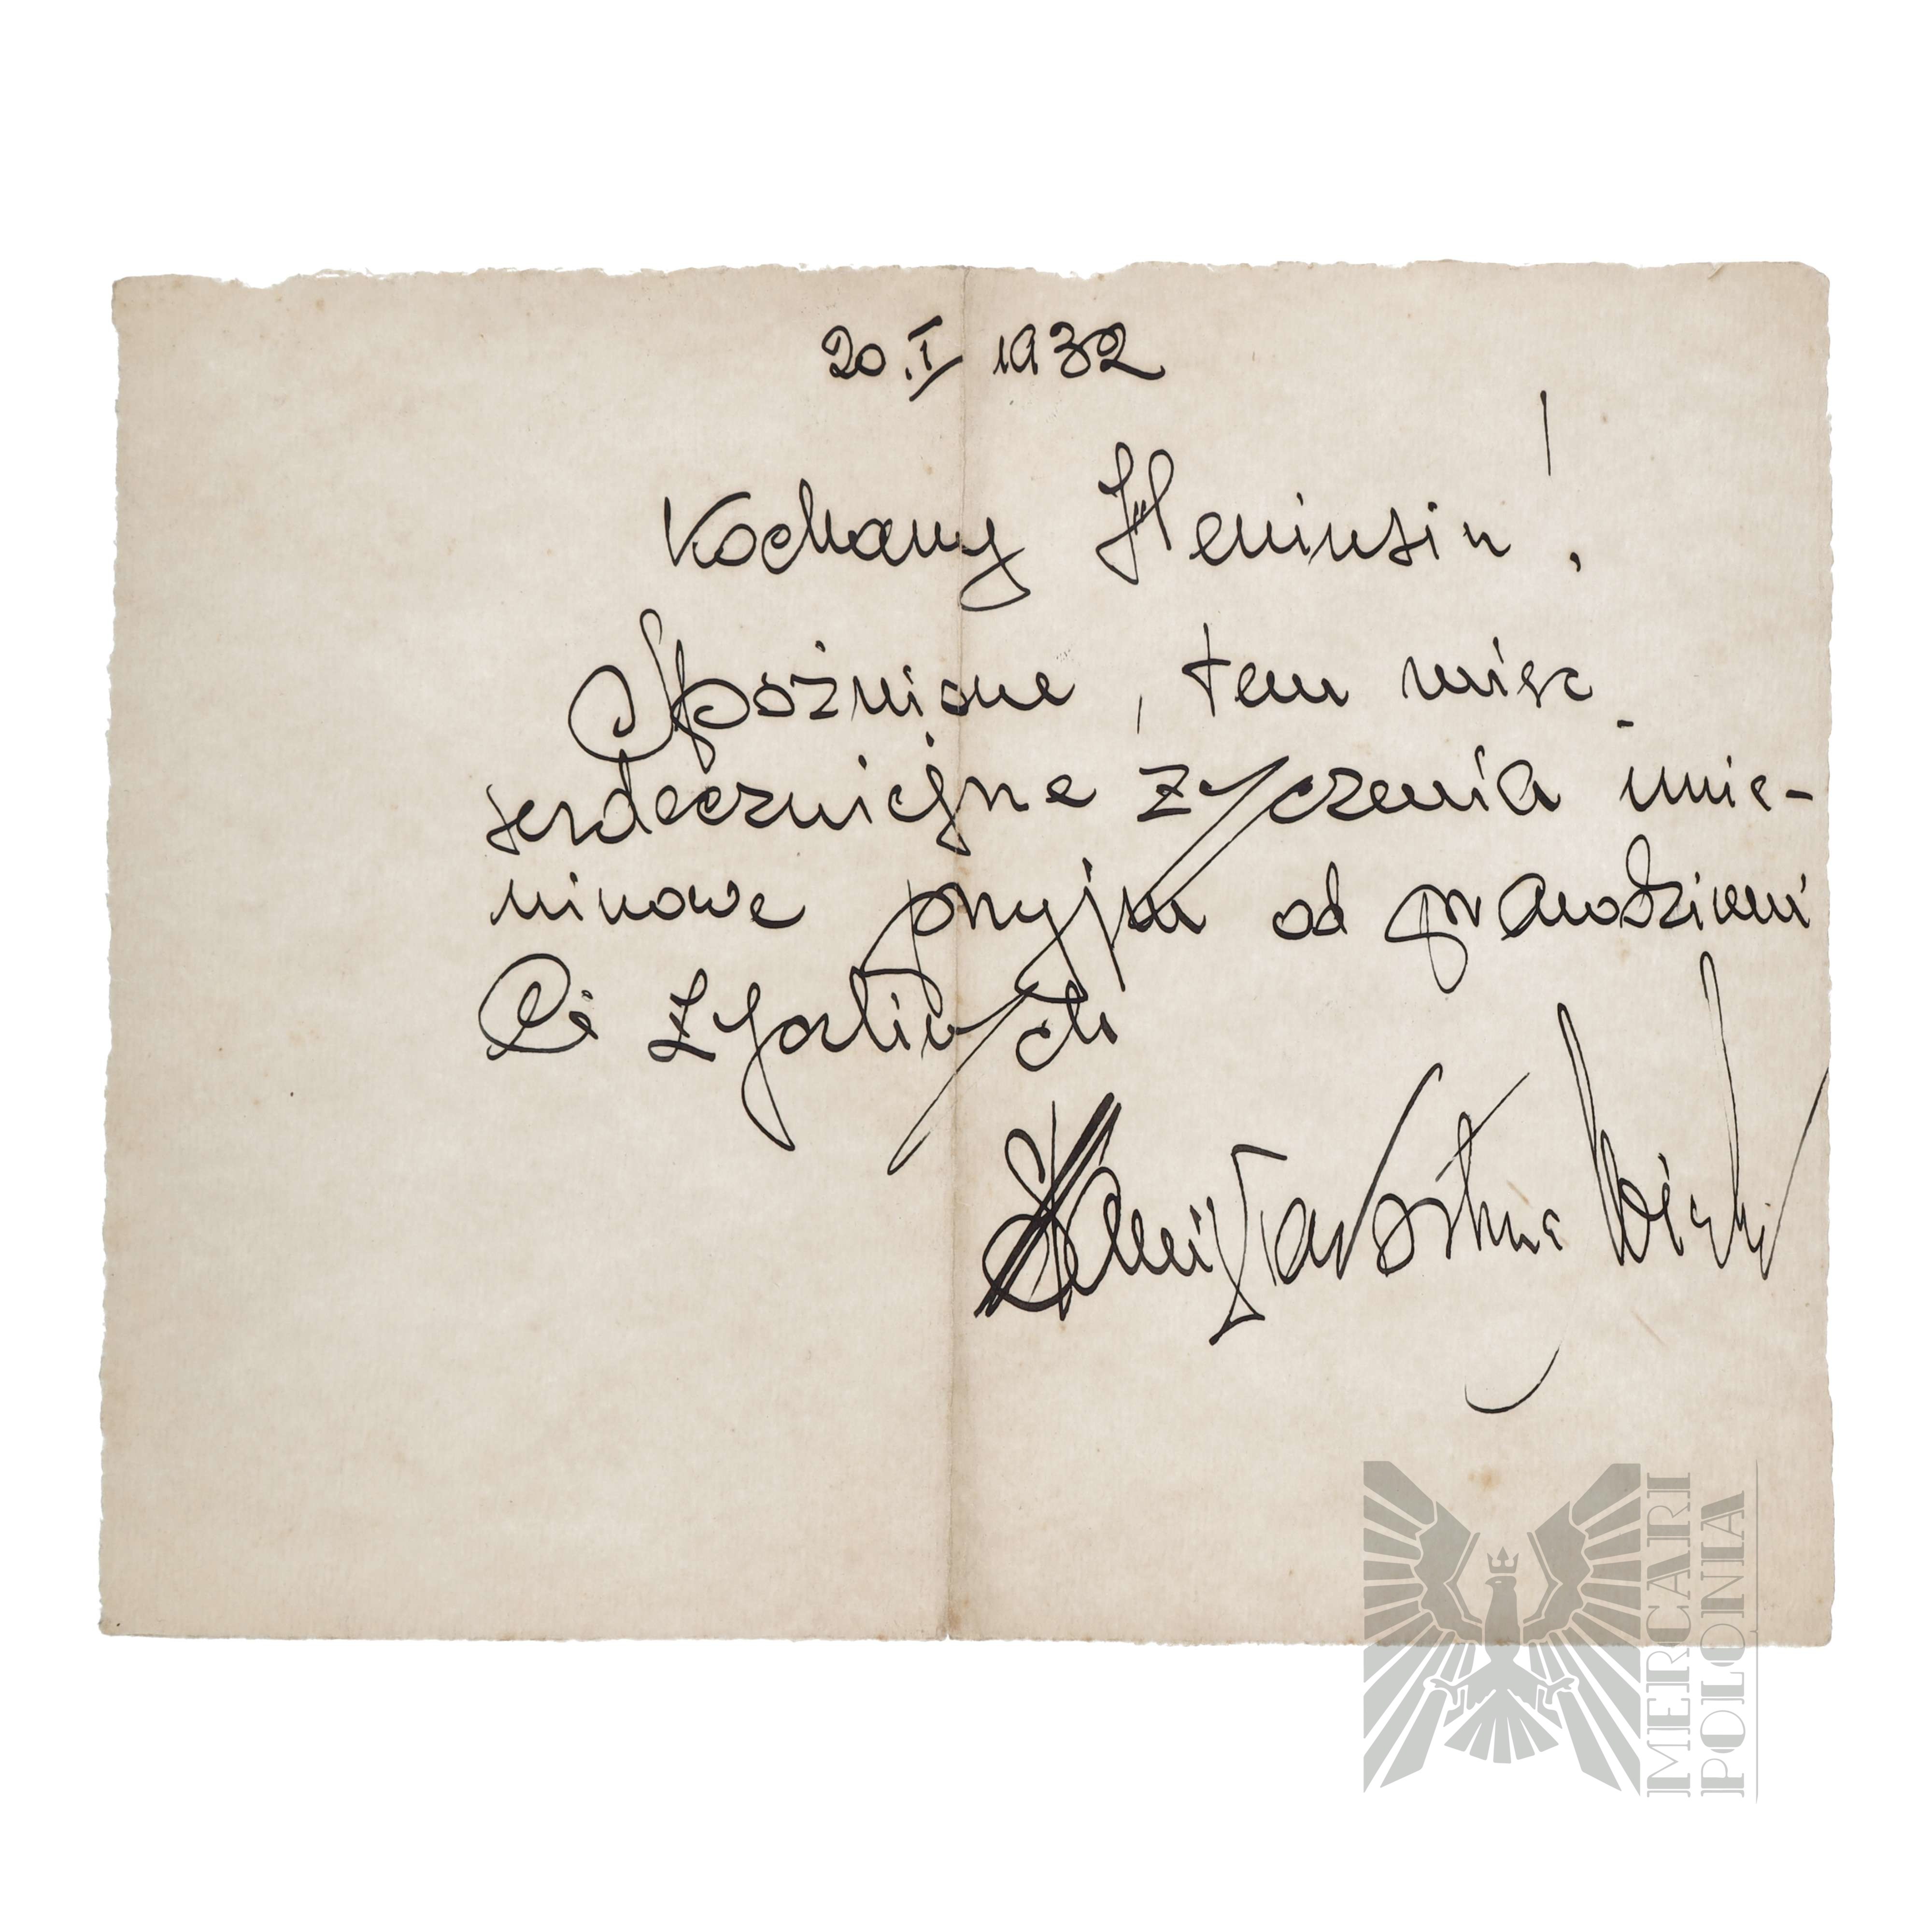 20.I 1932
Kochany Heniusiu!
Spóźnione, tem więc
serdeczniejsze życzenia imie-
ninowe przyjm od prawdziwie
Ci życzliwych
MERCARI
POLONIA